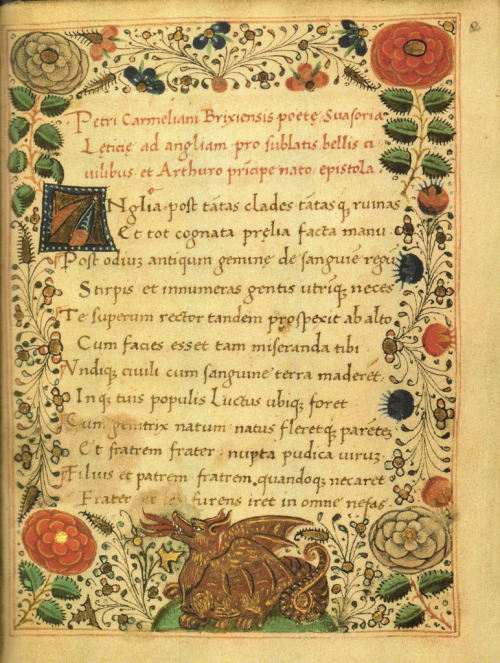 Petri Carmeliani Brixiensis poetę Suasoria
Letície ad angliam pro sublatis bellis ci
uilibus et Arthuro prīcipe nato epistola.
ANglia post tātas clades tātasq̨ ruinas
Et tot cognata pręlia facta manu
Post odiuȝ antiqum geminę de sanguīe regū
Stirpis et innumeras gentis utriq̨ neces
Te superum rector tandem prospexit ab alto
Cum facies esset tam miseranda tibi
Vndiq̨ ciuili cum sanguine terra maderet.
Inq̨ tuis populis Luctus ubiq̨ foret
Cum genitrix natum: natus fleretq̨ parētē
Et fratrem frater: nupta pudica uirum.
Filius et patrem: fratrem quandoq̨ necaret
Frater: et furens iret in omne nefas.